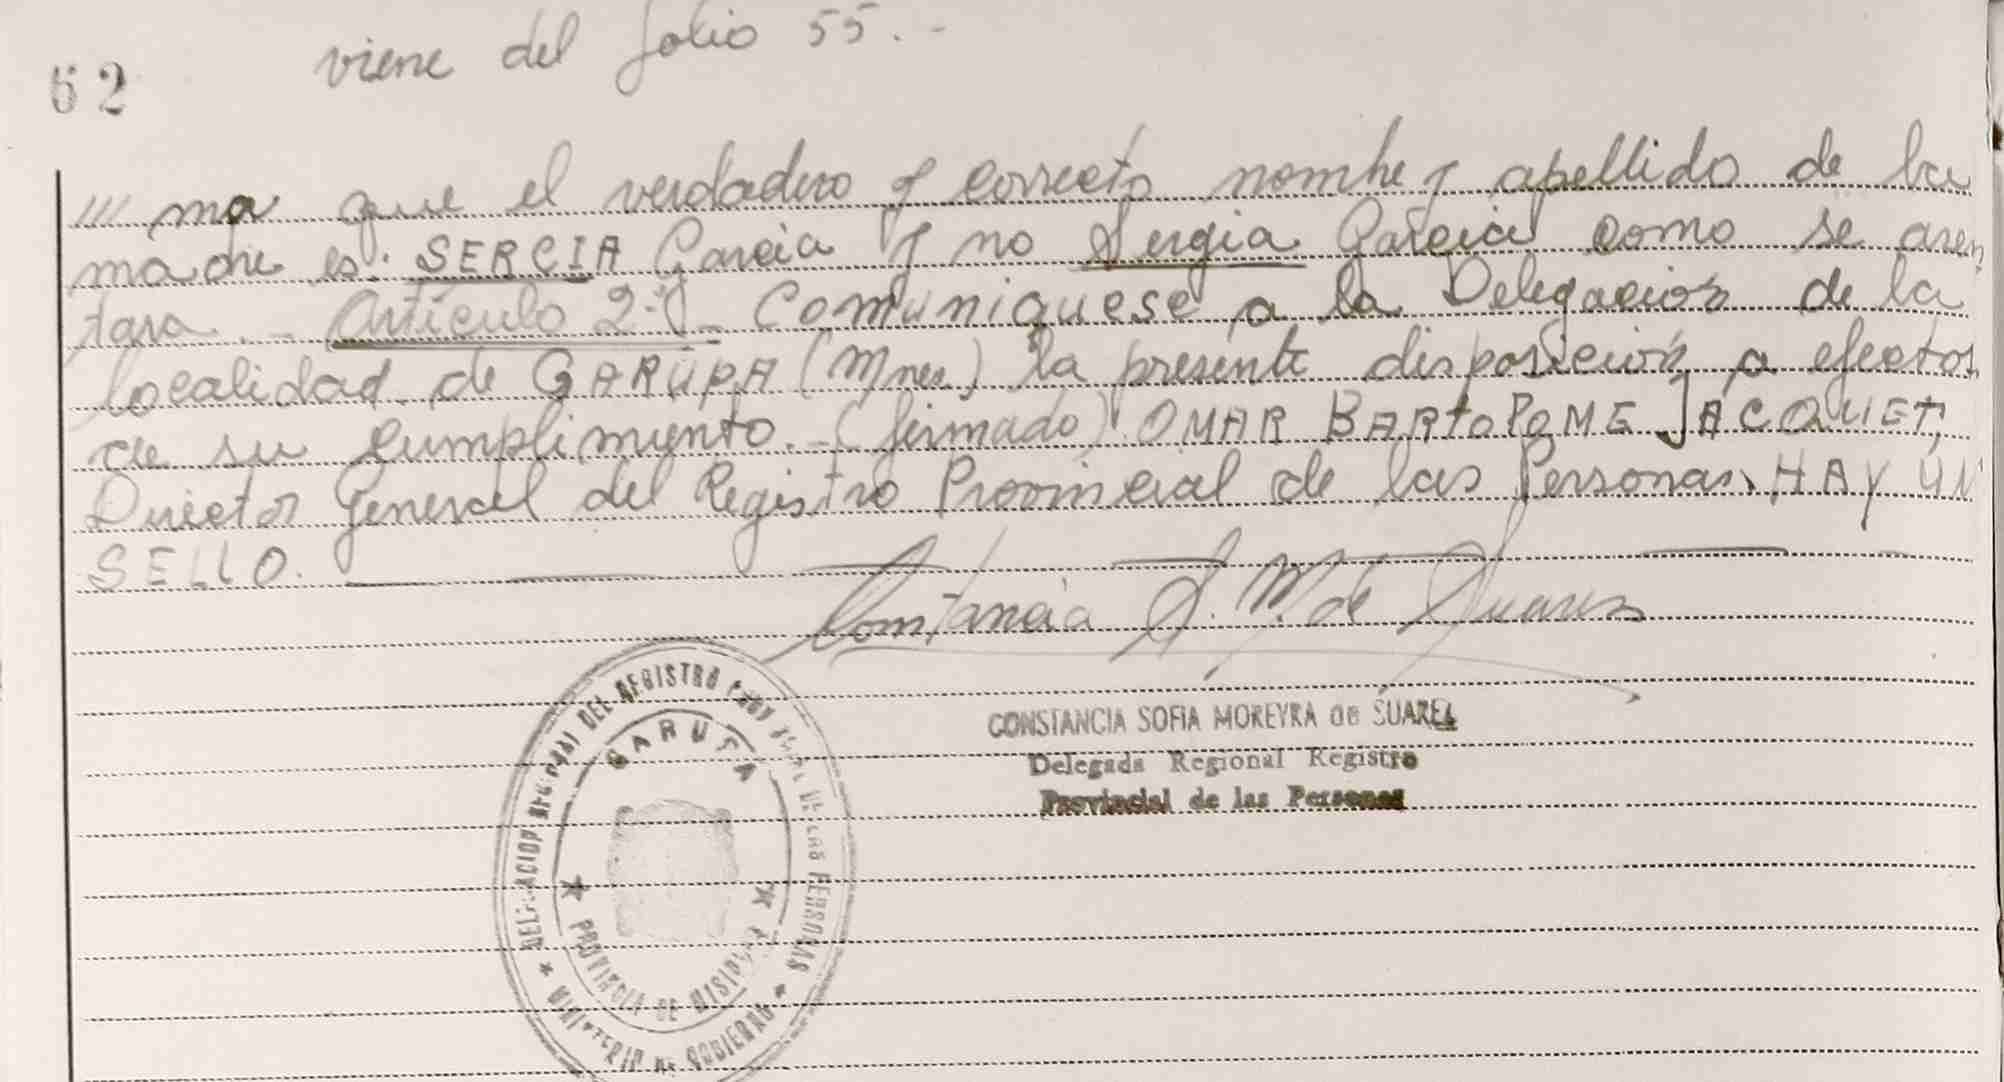 viene del folio 55.-
62
/// ma que el verdadero y correcto nombre y apellido de la
madre es: SERCIA Garcia y no Sergia Garcia como se asen
tara.- Artículo 2º- Comuniquese a la Delegación de la
localidad de GARUPA (Mnes.) la presente disposición a efectos
de su cumplimiento.-(firmado) OMAR BARTOLOME JACQUET,
Director General del Registro Provincial de las Personas, HAY UN
SELLO.
Constancia S. M. de Suarez
CONSTANCIA SOFIA MOREYRA de SUAREZ
Delegada Regional Registro
Provincial de las Personas
DELEGACION REGIONAL DEL REGISTRO PROVINCIAL DE LAS PERSONAS
GARUPA
PROVINCIA DE MISIONES
MINISTERIO DE GOBIERNO